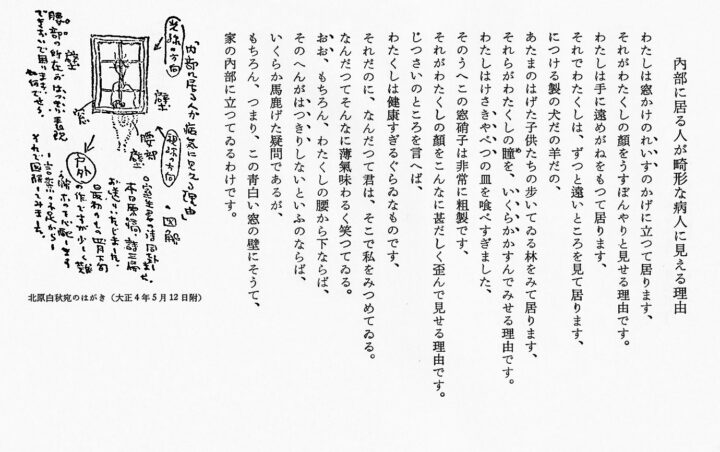 内部に居る人が畸形な病人に見える理由
わたしは窓かけのれいすのかげに立つて居ります、
それがわたくしの顔をうすぼんやりと見せる理由です。
わたしは手に遠めがねをもつて居ります、
それでわたくしは、ずつと遠いところを見て居ります、
につける製の犬だの羊だの、
あたまのはげた子供たちの歩いてゐる林をみて居ります、
それらがわたくしの瞳を、いくらかかすんでみせる理由です。
わたしはけさきやべつの皿を喰べすぎました、
そのうへこの窓硝子は非常に粗製です、
それがわたくしの顔をこんなに甚だしく歪んで見せる理由です。
じつさいのところを言へば、
わたくしは健康すぎるぐらゐなものです、
それだのに、なんだつて君は、そこで私をみつめてゐる。
なんだつてそんなに薄氣味わるく笑つてゐる。
おお、もちろん、わたくしの腰から下ならば、
そのへんがはつきりしないといふのならば、
いくらか馬鹿げた疑問であるが、
もちろん、つまり、この青白い窓の壁にそうて、
家の内部に立つてゐるわけです。
「内部に居る人が病気に見える理由」
図解
光線の方向
視線の方向
壁
腰部
壁
窓
戸外
北原白秋宛のはがき（大正4年5月12日附）